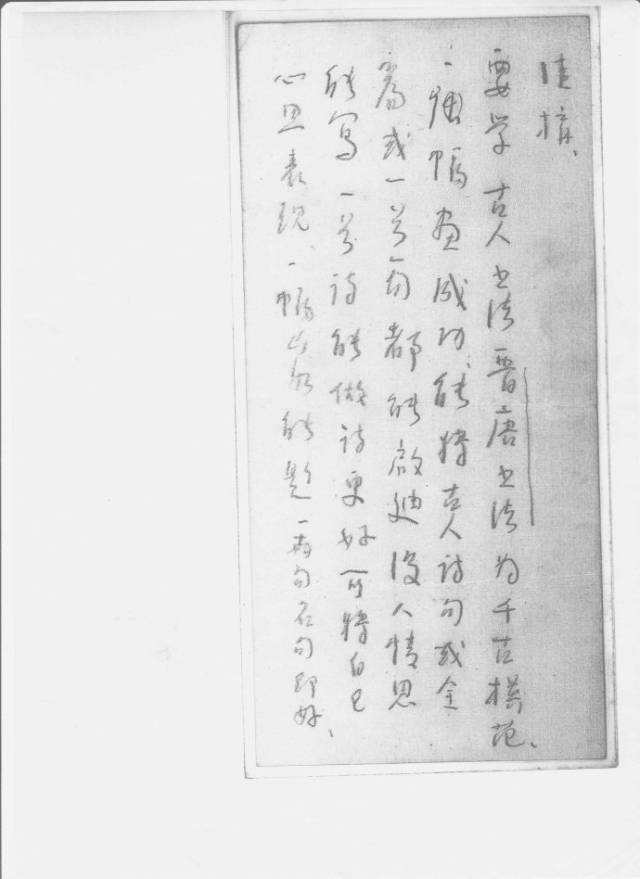 佳構、
要学古人书法晋唐书法为千古模范、
一張幅画成功、能将古人诗句或全
篇或一首一句都能啟迪後人情思
能写一首诗能做诗更好可将自己
心思表現、一幅山水能题一両句名句即好、